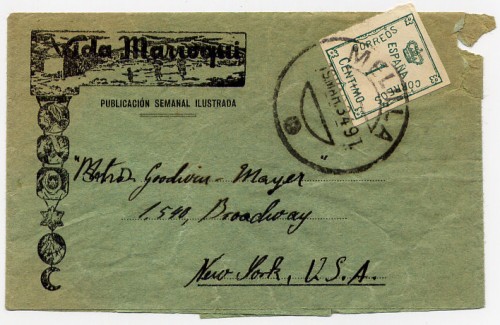 Vida Marroqui
PUBLICACIÓN SEMANAL ILUSTRADA
CORREOS
ESPAÑA
1
CENTIMO
MELILLA
15 MAR 34
"Metro Goodwin - Mayer
1.540, Broadway
New York, U.S.A.